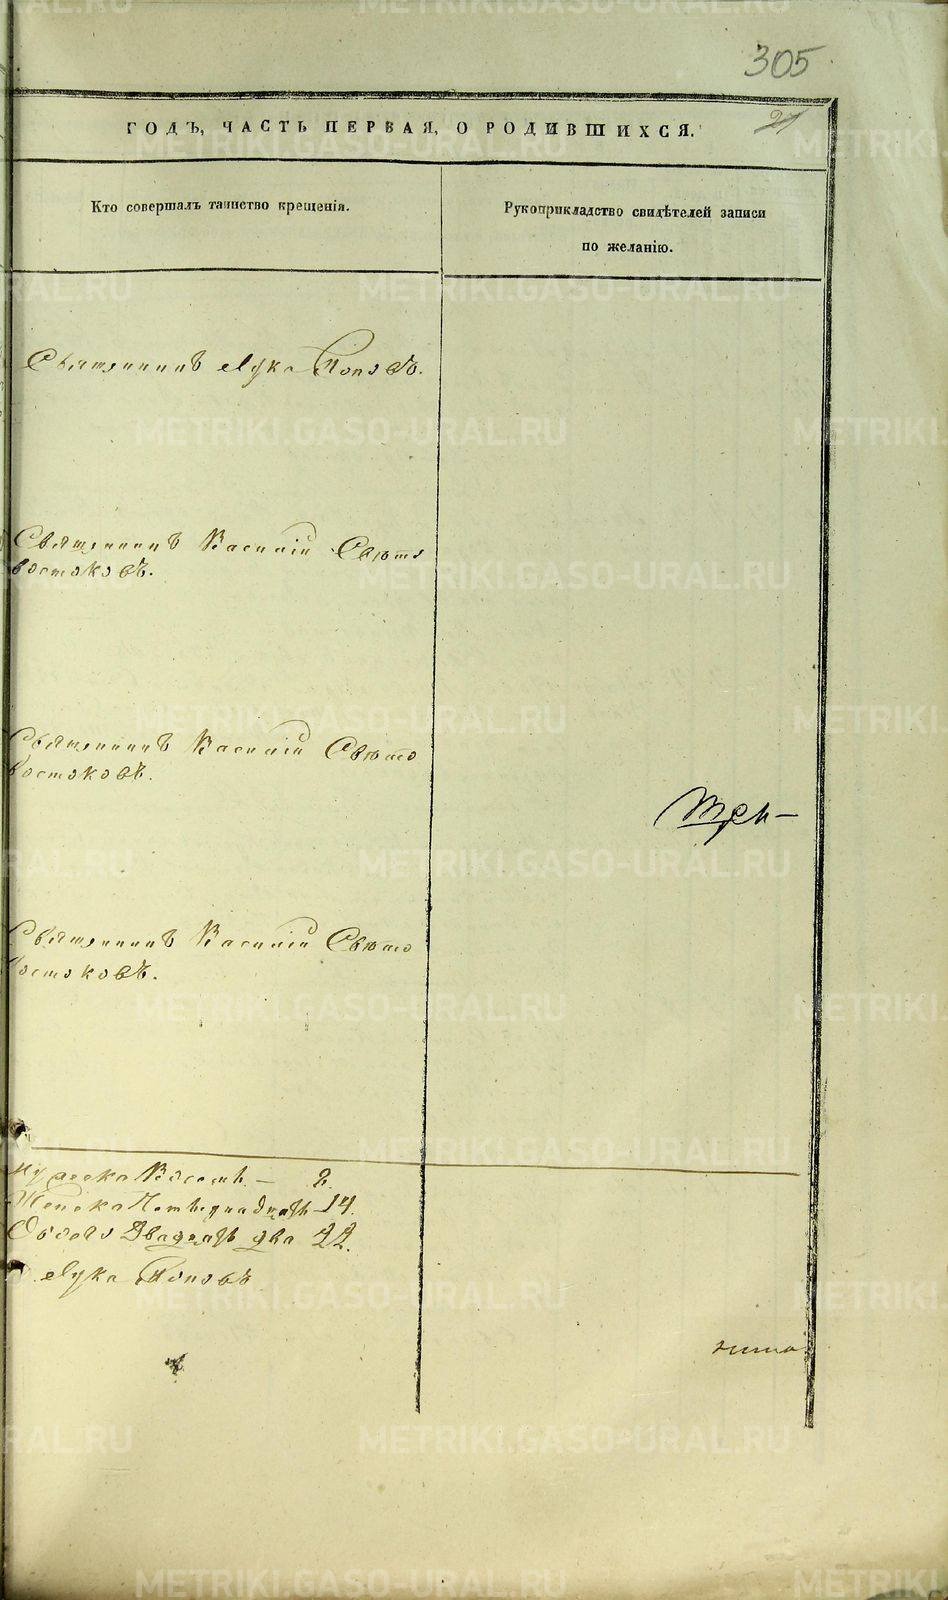 305
21
ГОДЪ, ЧАСТЬ ПЕРВАЯ, О РОДИВШИХСЯ.
Кто совершалъ таинство крещенія.
Рукоприкладство свидѣтелей записи
по желанію.
Священникъ Лука Поповъ.
Священникъ Василій Свѣто
востоковъ.
Священникъ Василій Свѣто
востоковъ.
Священникъ Василій Свѣто
востоковъ.
Мужеска Восемь — 8.
Женска Четырнадцать 14.
Обоего Двадцать два 22.
Лука Поповъ
METRIKI.GASO-URAL.RU